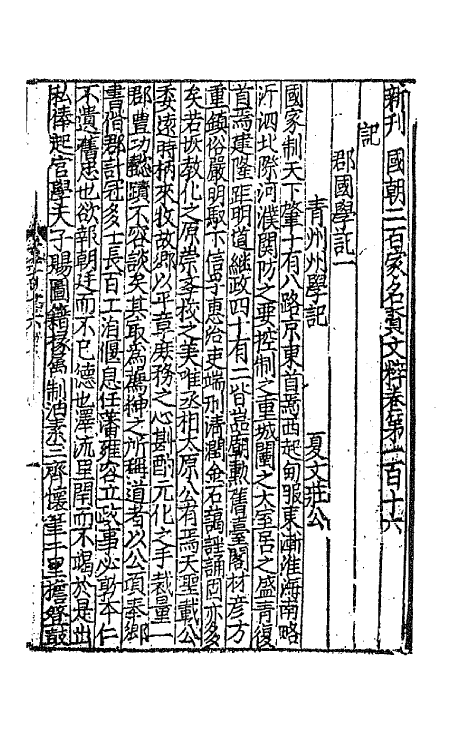 新刊國朝二百家名賢文粹卷第一百十六
記
郡國學記一
青州州學記 夏文莊公
國家制天下肇十有八路京東首焉西赴甸服東漸淮海南略
沂泗北際河濮關防之要控制之重城闉之大室居之盛青復
首焉建隆距明道繼政四十有二皆嵓廟勳舊臺閣材彥方
重鎮俗嚴明馭下信孚惠洽吏端刑清潤金石藹謠誦固亦多
矣若坂教化之原崇庠校之美唯丞相太原公有焉天聖載公
委遠時柄來牧故郡以平章庶務之心斟酌元化之手裁量一
郡豊功懿蹟不容談矣其取為縉紳之所稱道者以公頃泰鄉
書偕郡計冠多士長百工洎偃息任藩雍容立政事必剪本仁
不遺舊忠也欲報朝廷而不已德也澤流里閈而不竭於是出
私俸起官學天子賜圖籍稼萬制油素三齊懷筆千里擔簦鼓